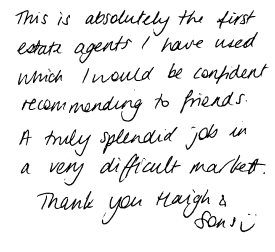 This is absolutely the first
estate agents I have used
which I would be confident
recommending to friends.
A truly splendid job in
a very difficult market.
Thank you Haigh &
Sons :)